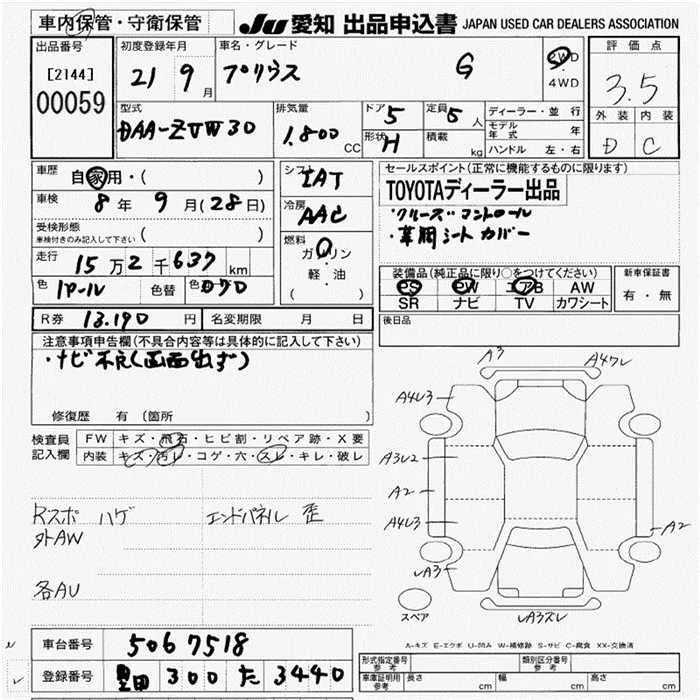 車内保管・守衛保管 JU 愛知 出品申込書 JAPAN USED CAR DEALERS ASSOCIATION
出品番号 [2144] 00059
初度登録年月 21 9月
車名・グレード プリウス G
2WD・4WD
評価点 3.5
外装 D 内装 C
型式 DAA-ZVW30
排気量 1.800 CC
ドア 5 定員 5人
形状 H 積載 kg
ディーラー・並行
モデル年式 年
ハンドル 左・右
車歴 自家用・( )
車検 8年 9月(28日)
受検形態 車検付きのみ記入して下さい ( )
走行 15万2千637km
色 パール 色替 色
シフト IAT
冷房 AAC
燃料 ガソリン・軽・油 ( )
セールスポイント(正常に機能するものに限ります)
TOYOTAディーラー出品
・クルーズコントロール
・革調シートカバー
装備品(純正品に限り○をつけてください)
PS PW エアB AW
SR ナビ TV カワシート
新車保証書 有・無
R券 13.190円 名変期限 月 日
後日品
注意事項申告欄(不具合内容等は具体的に記入して下さい)
・ナビ不良(画面出ず)
修復歴 有(箇所
検査員記入欄
FW キズ・飛石・ヒビ割・リペア跡・X要
内装 キズ・汚レ・コゲ・穴・スレ・キレ・破レ
Rスポ ハゲ エンドパネル 歪
外AW
各AU
A3
A4ワレ
A4U3
A3U2
A2
A4U3
A2
A3
A3ズレ
スペア
A-キズ E-エクボ U-凹み W-補修跡 S-サビ C-腐食 XX-交換済
車台番号 5067518
登録番号 豊田 300 た 3440
形式指定番号 参考 類別区分番号 参考
車庫証明用 参考 長さ cm 幅 cm 高さ cm